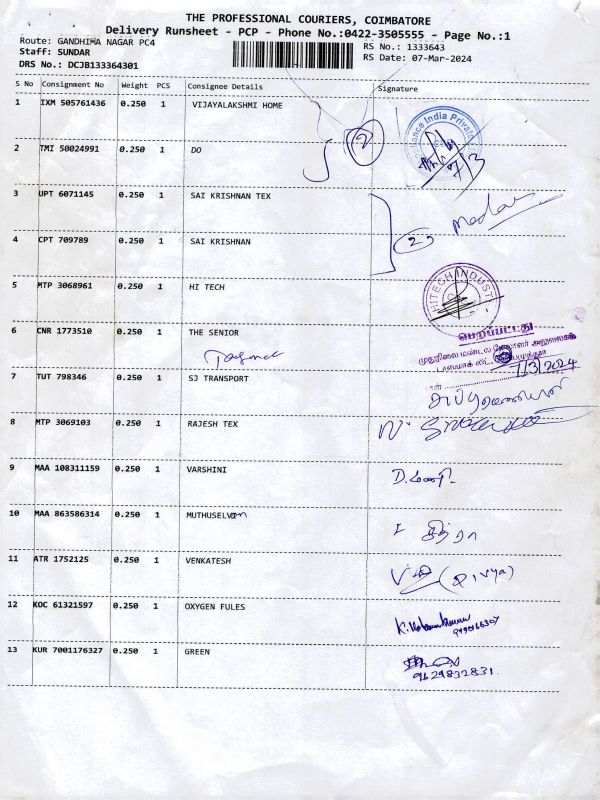 THE PROFESSIONAL COURIERS, COIMBATORE
Delivery Runsheet - PCP - Phone No.:0422-3505555 - Page No.:1
Route: GANDHIMA NAGAR PC4
RS No.: 1333643
Staff: SUNDAR
RS Date: 07-Mar-2024
DRS No.: DCJB133364301
S No Consignment No Weight PCS Consignee Details Signature
1 IXM 505761436 0.250 1 VIJAYALAKSHMI HOME
2
2 TMI 50024991 0.250 1 DO
7/3
3 UPT 6071145 0.250 1 SAI KRISHNAN TEX
4 CPT 709789 0.250 1 SAI KRISHNAN
2
5 MTP 3068961 0.250 1 HI TECH
HITECH INDUST
பெறப்பட்டது
6 CNR 1773510 0.250 1 THE SENIOR
7/3/2024
7 TUT 798346 0.250 1 SJ TRANSPORT
8 MTP 3069103 0.250 1 RAJESH TEX
9 MAA 108311159 0.250 1 VARSHINI
D. மணி
10 MAA 863586314 0.250 1 MUTHUSELVAN
சித்ரா
11 ATR 1752125 0.250 1 VENKATESH
(Divya)
12 KOC 61321597 0.250 1 OXYGEN FULES
13 KUR 7001176327 0.250 1 GREEN
9629832831